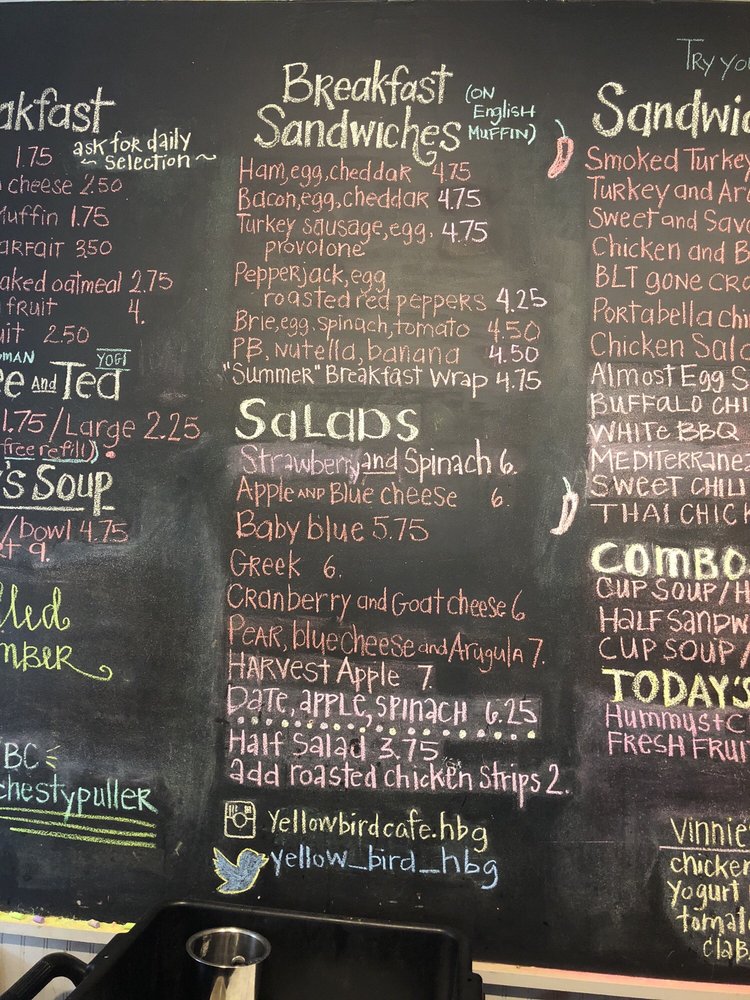 akfast
1.75 ask for daily
~ selection ~
cheese 2.50
Muffin 1.75
arfait 3.50
aked oatmeal 2.75
fruit 4.
uit 2.50
YOGI
ee and Tea
1.75/Large 2.25
(free refill)
's Soup
/bowl 4.75
9.
lled
mber
BC
chestypuller
Breakfast
Sandwiches
(ON
English
Muffin)
Ham, egg, cheddar 4.75
Bacon, egg, cheddar 4.75
Turkey sausage, egg, 4.75
provolone
Pepperjack, egg,
roasted red peppers 4.25
Brie, egg, spinach, tomato 4.50
PB, nutella, banana 4.50
"Summer" Breakfast Wrap 4.75
Salads
Strawberry and Spinach 6.
Apple and Blue cheese 6.
Baby blue 5.75
Greek 6.
Cranberry and Goat cheese 6
Pear, blue cheese and Arugula 7.
Harvest Apple 7.
Date, apple, spinach 6.25
Half Salad 3.75
add roasted chicken strips 2.
Yellowbirdcafe.hbg
yellow_bird_hbg
Try you
Sandwic
Smoked Turkey
Turkey and Ar
Sweet and Sav
Chicken and B
BLT gone cro
Portabella chi
Chicken Sala
Almost Egg S
Buffalo chi
White BBQ
Mediterrane
Sweet Chili
Thai Chick
Combo
Cup Soup/H
Half Sandw
Cup Soup/
Today's
Hummus + C
Fresh Frui
Vinnie
chicken
yogurt
tomat
ciab